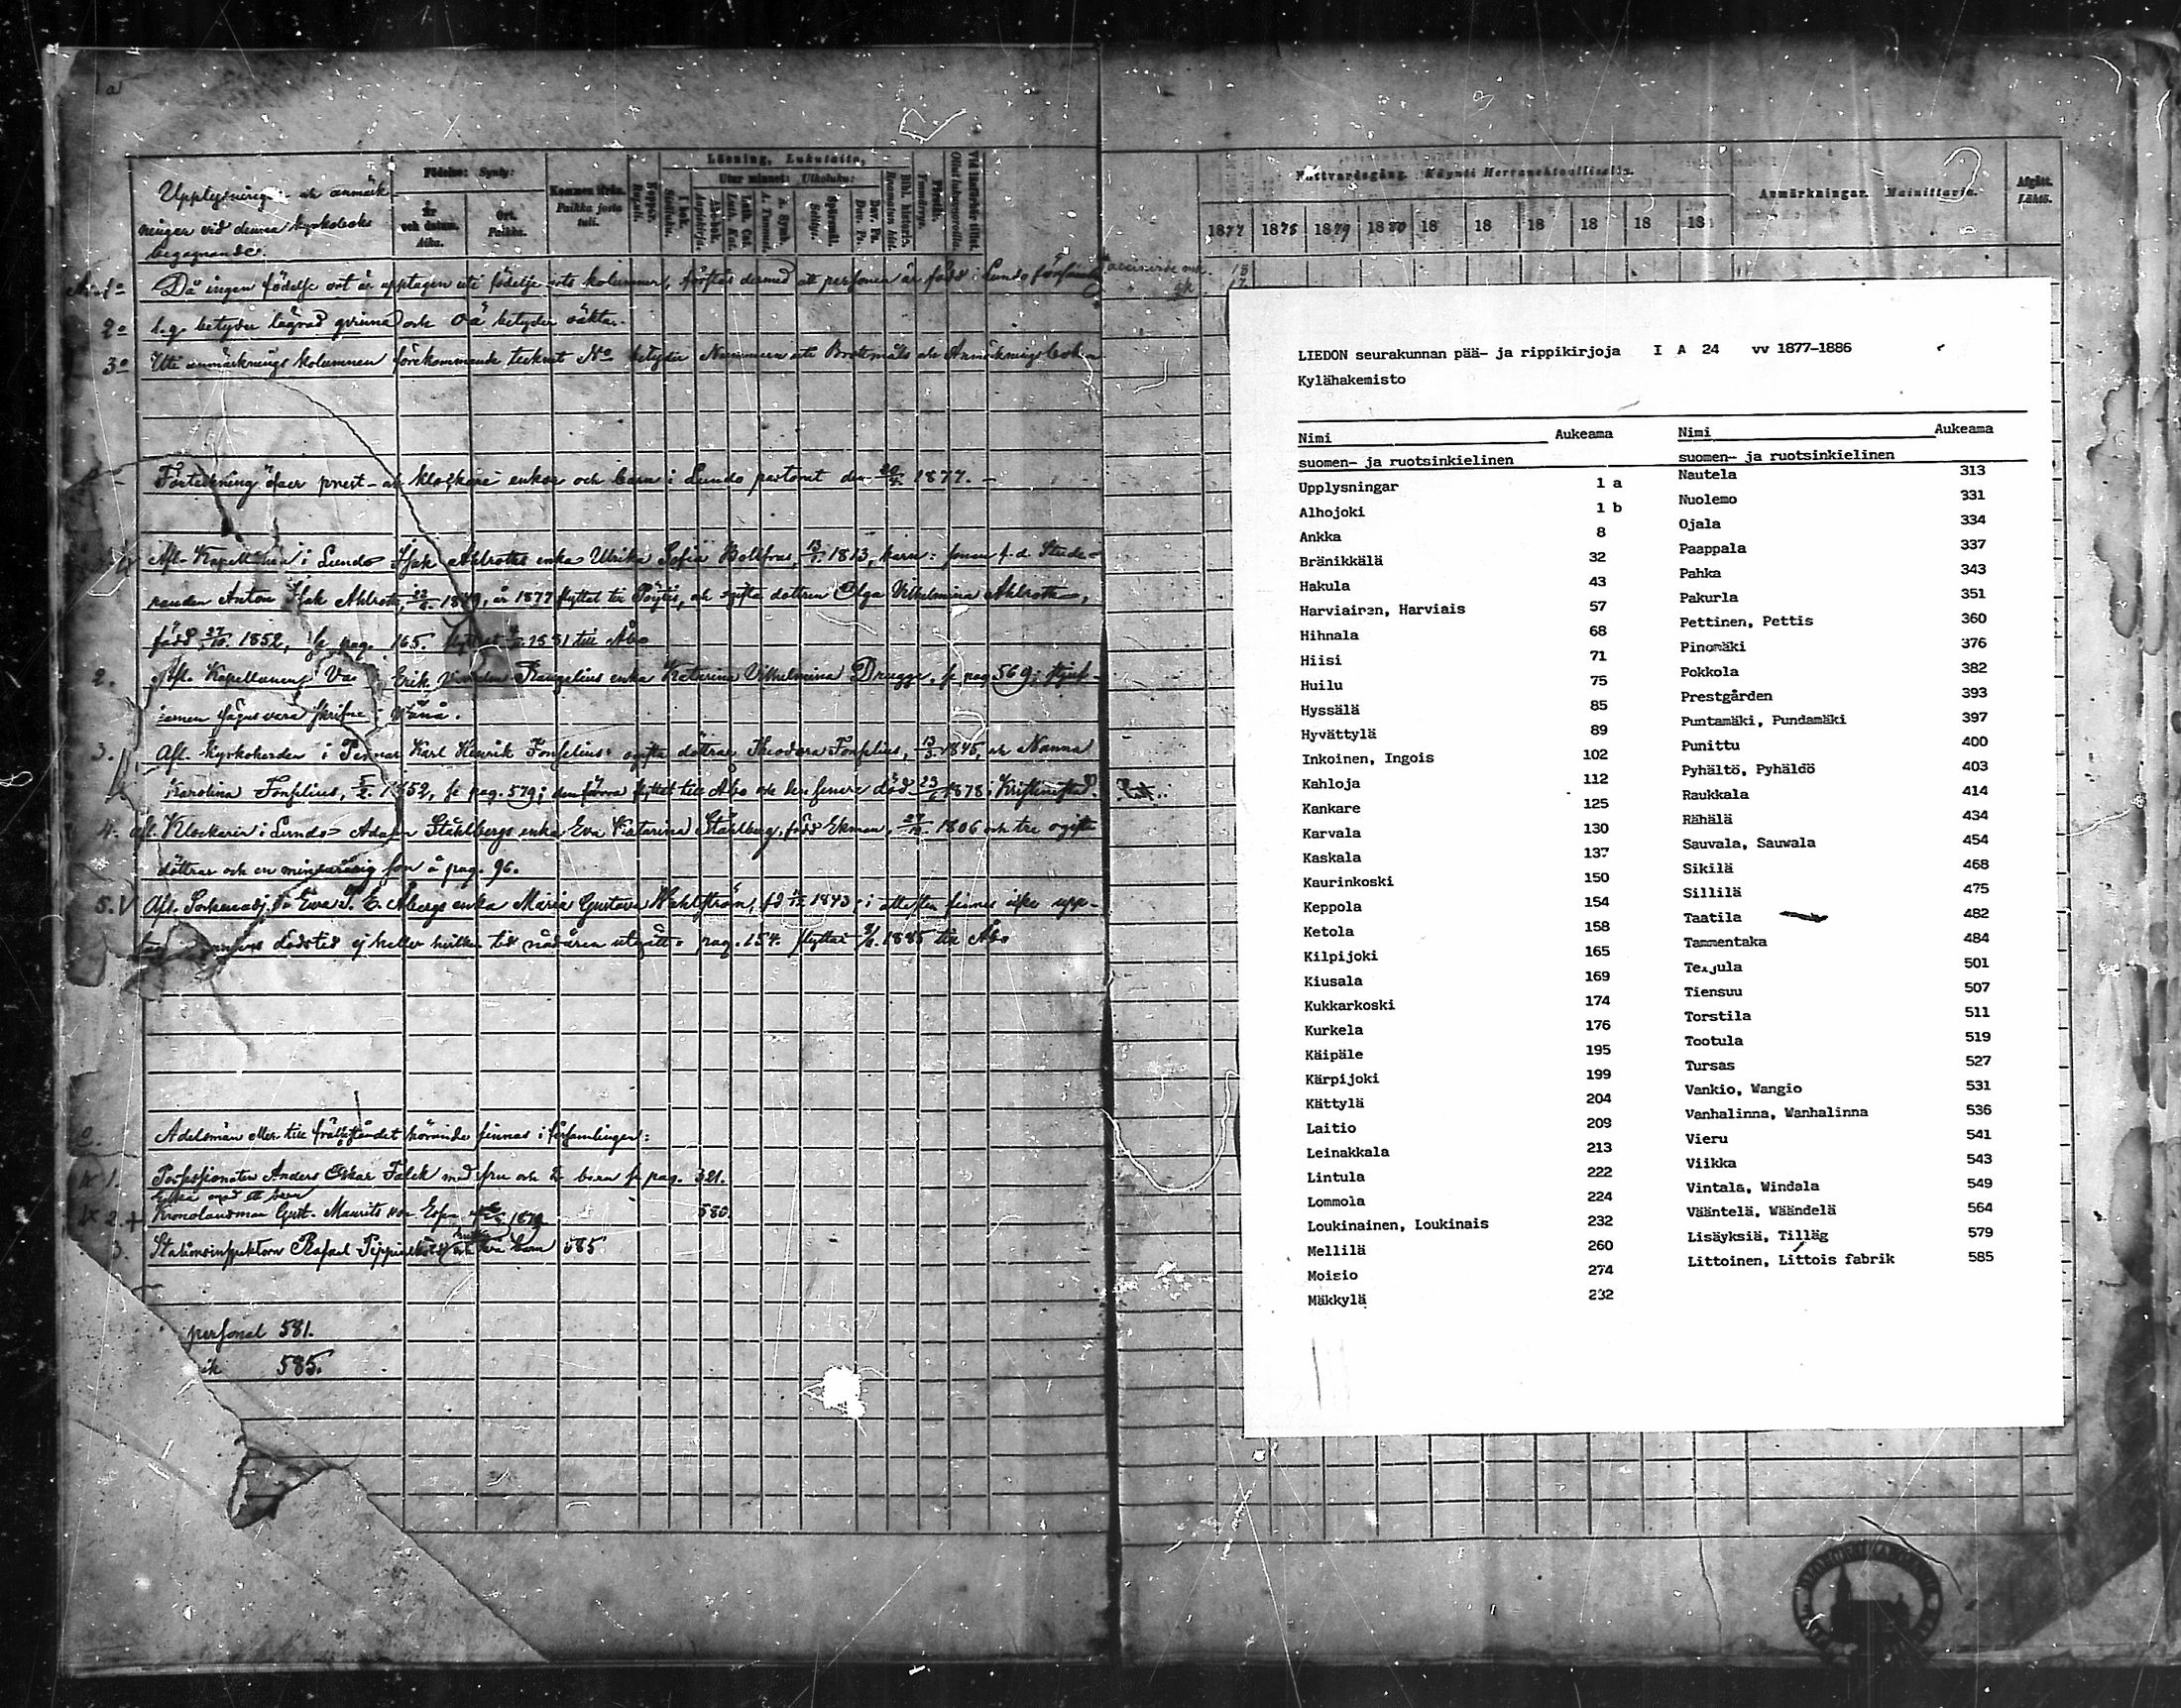 1 a
Upplysningar och anmärk-
ningar vid denna kyrkoboks
begagnande.
Födelse: Synty:
År och datum. Aika.
Ort. Paikka.
Kommen ifrån. Paikka josta tuli.
Koppor. Rupuli.
Läsning, Lukutaito,
Utur minnet: Ulkoluku:
I bok. Sisäluku.
Abcbok. Aapiskirja.
Luth. Cat. Luth. Kat.
A. Symb. A. Tunnust.
Spörsmål. Selitys.
Dav. Ps. Dav. Ps.
Bibl. historia. Raamatun hist.
1:o Då ingen födelse ort är upptagen uti födelse orts kolumnen, förstås dermed att personen är född i Lundo församling
2o l.q. betyder lägrad qvinna och oä betyder oäkta.
3o Uti anmärknings kolumnen förekommande tecknet No betyder Nummern uti Brottmåls och Anmärkningsboken
Förteckning öfver prest- och klockare enkor och barn i Lundo pastorat den 1877.
Afl. Kapellanen i Lundo Isak Ahlroths enka Ulrika Sofia 1813, barn: sonen f.d. Stude-
randen Anton Isak Ahlroth, år 1877 flyttat till Pöytis, och ogifta dottren Olga Vilhelmina Ahlroth,
född 27/10. 1852, se pag. 165. flyttat 1881 till Åbo
2. Afl. Kapellanen i Erik enka Katarina Vilhelmina Drugge, se pag. 569;
sägas vara skrifne i
3. Afl. Kyrkoherden i Karl Henrik Fonselius' ogifta döttrar Theodora Fonselius, 13/3 1845, och Nanna
Karolina Fonselius, 1852, se pag. 579; den förra flyttat till Åbo och den senare död 1878 i Kristinestad.
4. Afl. Klockaren i Lundo Adam Ståhlbergs enka Eva Katarina Ståhlberg, född Ekman, 1806 och tre ogifta
döttrar och en minderårig son å pag. 96.
5. Afl. Åbergs enka Maria Gustava Wahlström, 1843; i attesten finnes icke upp-
dödstid ej heller hvilken tid nådåren utgått. pag. 154. flyttat 1885 till Åbo
Adelsmän eller till frälseståndet hörande finnas i församlingen:
1. Possessionaten Anders Oskar Falck med fru och barn se pag. 321.
Enka med ett barn
2. + Kronolänsman Gust. Maurits von 1879 580.
3. Stationsinspektorn Rafael och barn 585
personal 581.
585.
Nattvardsgång. Käynti Herranehtoollisella.
1877 1878 1879 1880 18 18 18 18 18 18
Anmärkningar. Mainittavia.
Afgått. Lähtö.
LIEDON seurakunnan pää- ja rippikirjoja I A 24 vv 1877-1886
Kylähakemisto
Nimi Aukeama
suomen- ja ruotsinkielinen
Upplysningar 1 a
Alhojoki 1 b
Ankka 8
Bränikkälä 32
Hakula 43
Harviainen, Harviais 57
Hihnala 68
Hiisi 71
Huilu 75
Hyssälä 85
Hyvättylä 89
Inkoinen, Ingois 102
Kahloja 112
Kankare 125
Karvala 130
Kaskala 137
Kaurinkoski 150
Keppola 154
Ketola 158
Kilpijoki 165
Kiusala 169
Kukkarkoski 174
Kurkela 176
Käipäle 195
Kärpijoki 199
Kättylä 204
Laitio 209
Leinakkala 213
Lintula 222
Lommola 224
Loukinainen, Loukinais 232
Mellilä 260
Moisio 274
Mäkkylä
Nimi Aukeama
suomen- ja ruotsinkielinen
Nautela 313
Nuolemo 331
Ojala 334
Paappala 337
Pahka 343
Pakurla 351
Pettinen, Pettis 360
Pinomäki 376
Pokkola 382
Prestgården 393
Puntamäki, Pundamäki 397
Punittu 400
Pyhältö, Pyhäldö 403
Raukkala 414
Rähälä 434
Sauvala, Sauwala 454
Sikilä 468
Sillilä 475
Taatila 482
Tammentaka 484
Teijula 501
Tiensuu 507
Torstila 511
Tootula 519
Tursas 527
Vankio, Wangio 531
Vanhalinna, Wanhalinna 536
Vieru 541
Viikka 543
Vintala, Windala 549
Vääntelä, Wäändelä 564
Lisäyksiä, Tilläg 579
Littoinen, Littois fabrik 585